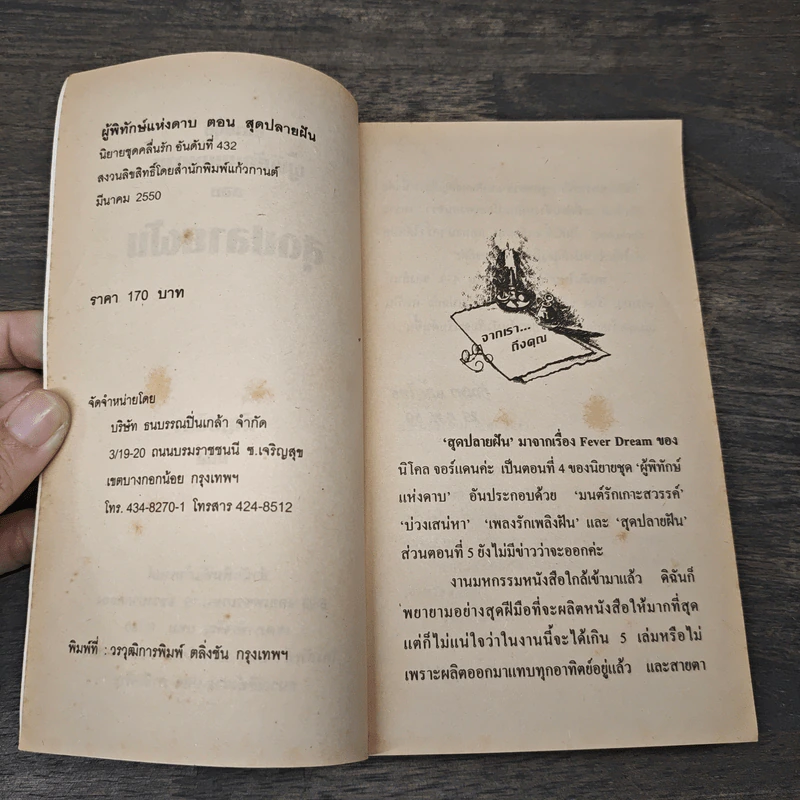 ผู้พิทักษ์แห่งดาบ ตอน สุดปลายฝัน
นิยายชุดคลื่นรัก อันดับที่ 432
สงวนลิขสิทธิ์โดยสำนักพิมพ์แก้วกานต์
มีนาคม 2550
ราคา 170 บาท
จัดจำหน่ายโดย
บริษัท ธนบรรณปิ่นเกล้า จำกัด
3/19-20 ถนนบรมราชชนนี ซ.เจริญสุข
เขตบางกอกน้อย กรุงเทพฯ
โทร. 434-8270-1 โทรสาร 424-8512
พิมพ์ที่ : วรวุฒิการพิมพ์ ตลิ่งชัน กรุงเทพฯ
จากเรา...
ถึงคุณ
‘สุดปลายฝัน’ มาจากเรื่อง Fever Dream ของ
นิโคล จอร์แดนค่ะ เป็นตอนที่ 4 ของนิยายชุด ‘ผู้พิทักษ์
แห่งดาบ’ อันประกอบด้วย ‘มนต์รักเกาะสวรรค์’
‘บ่วงเสน่หา’ ‘เพลงรักเพลิงฝัน’ และ ‘สุดปลายฝัน’
ส่วนตอนที่ 5 ยังไม่มีข่าวว่าจะออกค่ะ
งานมหกรรมหนังสือใกล้เข้ามาแล้ว ดิฉันก็
พยายามอย่างสุดฝีมือที่จะผลิตหนังสือให้มากที่สุด
แต่ก็ไม่แน่ใจว่าในงานนี้จะได้เกิน 5 เล่มหรือไม่
เพราะผลิตออกมาแทบทุกอาทิตย์อยู่แล้ว และสายตา